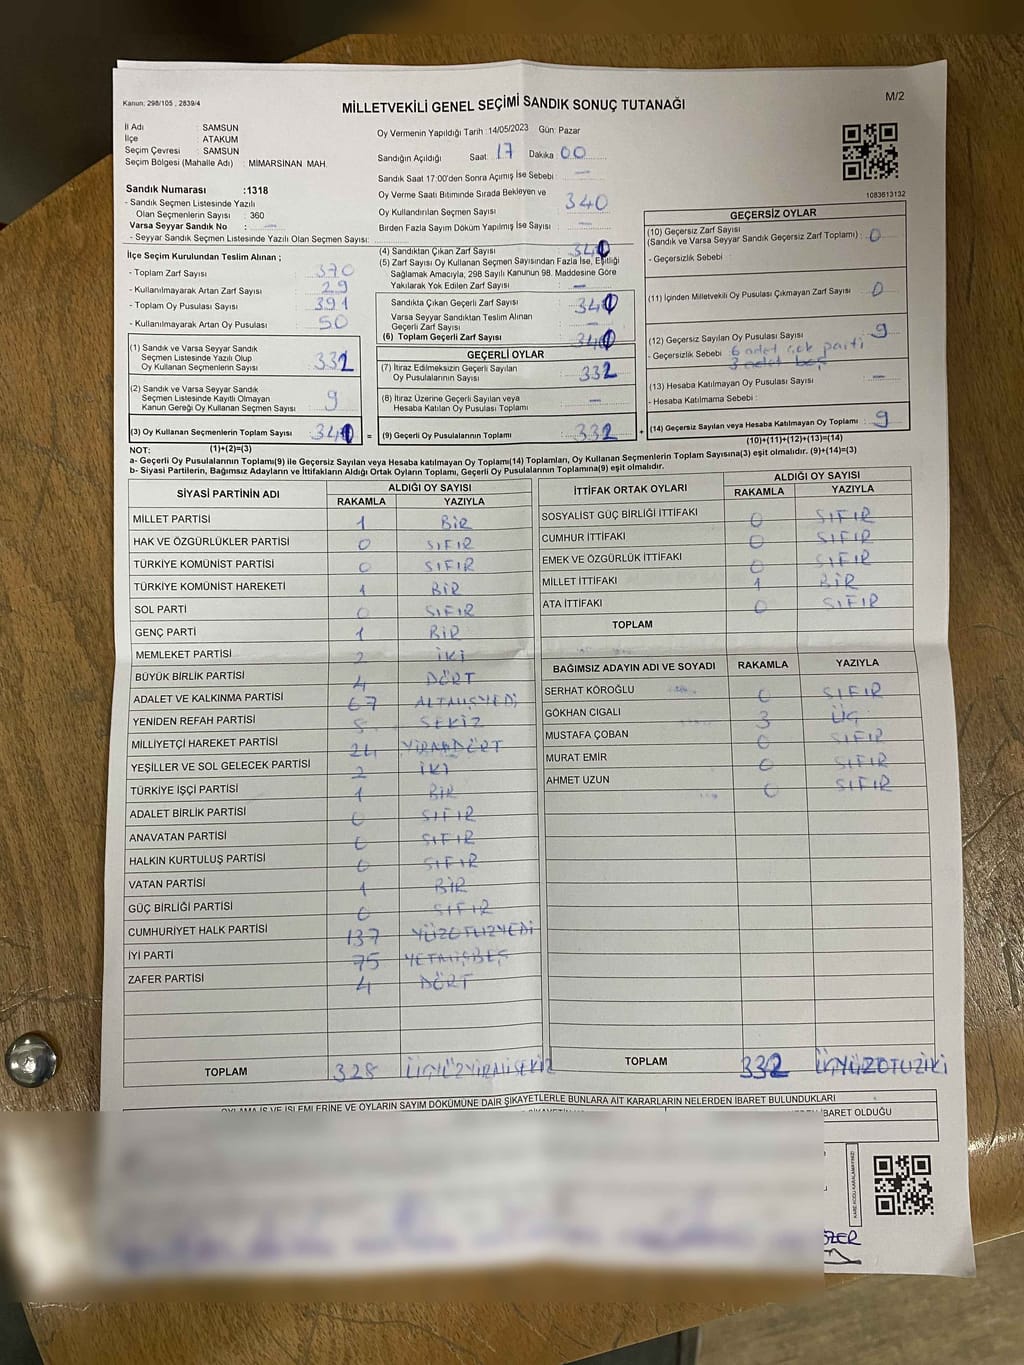 Kanun: 298/105 , 2839/4
MİLLETVEKİLİ GENEL SEÇİMİ SANDIK SONUÇ TUTANAĞI
M/2
İl Adı : SAMSUN
İlçe : ATAKUM
Seçim Çevresi : SAMSUN
Seçim Bölgesi (Mahalle Adı) : MİMARSİNAN MAH.
Sandık Numarası :1318
- Sandık Seçmen Listesinde Yazılı
Olan Seçmenlerin Sayısı : 360
Varsa Seyyar Sandık No : —
- Seyyar Sandık Seçmen Listesinde Yazılı Olan Seçmen Sayısı:
Oy Vermenin Yapıldığı Tarih :14/05/2023 Gün: Pazar
Sandığın Açıldığı Saat 17 Dakika 00
Sandık Saat 17:00'den Sonra Açımış İse Sebebi : —
Oy Verme Saati Bitiminde Sırada Bekleyen ve
Oy Kullandırılan Seçmen Sayısı : 340
Birden Fazla Sayım Döküm Yapılmış İse Sayısı : —
1083613132
İlçe Seçim Kurulundan Teslim Alınan ;
- Toplam Zarf Sayısı : 370
- Kullanılmayarak Artan Zarf Sayısı : 29
- Toplam Oy Pusulası Sayısı : 391
- Kullanılmayarak Artan Oy Pusulası : 50
(1) Sandık ve Varsa Seyyar Sandık
Seçmen Listesinde Yazılı Olup
Oy Kullanan Seçmenlerin Sayısı : 332
(2) Sandık ve Varsa Seyyar Sandık
Seçmen Listesinde Kayıtlı Olmayan
Kanun Gereği Oy Kullanan Seçmen Sayısı : 9
(3) Oy Kullanan Seçmenlerin Toplam Sayısı : 341
(1)+(2)=(3)
(4) Sandıktan Çıkan Zarf Sayısı : 341
(5) Zarf Sayısı Oy Kullanan Seçmen Sayısından Fazla İse, Eşitliği
Sağlamak Amacıyla, 298 Sayılı Kanunun 98. Maddesine Göre
Yakılarak Yok Edilen Zarf Sayısı : —
Sandıkta Çıkan Geçerli Zarf Sayısı : 341
Varsa Seyyar Sandıktan Teslim Alınan
Geçerli Zarf Sayısı : —
(6) Toplam Geçerli Zarf Sayısı : 341
GEÇERLİ OYLAR
(7) İtiraz Edilmeksizin Geçerli Sayılan
Oy Pusulalarının Sayısı : 332
(8) İtiraz Üzerine Geçerli Sayılan veya
Hesaba Katılan Oy Pusulası Toplamı : —
= (9) Geçerli Oy Pusulalarının Toplamı : 332 +
GEÇERSİZ OYLAR
(10) Geçersiz Zarf Sayısı
(Sandık ve Varsa Seyyar Sandık Geçersiz Zarf Toplamı) : 0
- Geçersizlik Sebebi :
(11) İçinden Milletvekili Oy Pusulası Çıkmayan Zarf Sayısı : 0
(12) Geçersiz Sayılan Oy Pusulası Sayısı : 9
- Geçersizlik Sebebi : 6 adet çok parti
3 adet boş
(13) Hesaba Katılmayan Oy Pusulası Sayısı : —
- Hesaba Katılmama Sebebi :
(14) Geçersiz Sayılan veya Hesaba Katılmayan Oy Toplamı : 9
(10)+(11)+(12)+(13)=(14)
NOT:
a- Geçerli Oy Pusulalarının Toplamı(9) ile Geçersiz Sayılan veya Hesaba katılmayan Oy Toplamı(14) Toplamları, Oy Kullanan Seçmenlerin Toplam Sayısına(3) eşit olmalıdır. (9)+(14)=(3)
b- Siyasi Partilerin, Bağımsız Adayların ve İttifakların Aldığı Ortak Oyların Toplamı, Geçerli Oy Pusulalarının Toplamına(9) eşit olmalıdır.
SİYASİ PARTİNİN ADI ALDIĞI OY SAYISI
RAKAMLA YAZIYLA
MİLLET PARTİSİ 1 BİR
HAK VE ÖZGÜRLÜKLER PARTİSİ 0 SIFIR
TÜRKİYE KOMÜNİST PARTİSİ 0 SIFIR
TÜRKİYE KOMÜNİST HAREKETİ 1 BİR
SOL PARTİ 0 SIFIR
GENÇ PARTİ 1 BİR
MEMLEKET PARTİSİ 2 İKİ
BÜYÜK BİRLİK PARTİSİ 4 DÖRT
ADALET VE KALKINMA PARTİSİ 67 ALTMIŞYEDİ
YENİDEN REFAH PARTİSİ 8 SEKİZ
MİLLİYETÇİ HAREKET PARTİSİ 24 YİRMİDÖRT
YEŞİLLER VE SOL GELECEK PARTİSİ 2 İKİ
TÜRKİYE İŞÇİ PARTİSİ 1 BİR
ADALET BİRLİK PARTİSİ 0 SIFIR
ANAVATAN PARTİSİ 0 SIFIR
HALKIN KURTULUŞ PARTİSİ 0 SIFIR
VATAN PARTİSİ 1 BİR
GÜÇ BİRLİĞİ PARTİSİ 0 SIFIR
CUMHURİYET HALK PARTİSİ 137 YÜZOTUZYEDİ
İYİ PARTİ 75 YETMİŞBEŞ
ZAFER PARTİSİ 4 DÖRT
TOPLAM 328 ÜÇYÜZYİRMİSEKİZ
İTTİFAK ORTAK OYLARI ALDIĞI OY SAYISI
RAKAMLA YAZIYLA
SOSYALİST GÜÇ BİRLİĞİ İTTİFAKI 0 SIFIR
CUMHUR İTTİFAKI 0 SIFIR
EMEK VE ÖZGÜRLÜK İTTİFAKI 0 SIFIR
MİLLET İTTİFAKI 1 BİR
ATA İTTİFAKI 0 SIFIR
TOPLAM
BAĞIMSIZ ADAYIN ADI VE SOYADI RAKAMLA YAZIYLA
SERHAT KÖROĞLU 0 SIFIR
GÖKHAN CIGALI 3 ÜÇ
MUSTAFA ÇOBAN 0 SIFIR
MURAT EMİR 0 SIFIR
AHMET UZUN 0 SIFIR
TOPLAM 332 ÜÇYÜZOTUZİKİ
OYLAMA İŞ VE İŞLEMLERİNE VE OYLARIN SAYIM DÖKÜMÜNE DAİR ŞİKAYETLERLE BUNLARA AİT KARARLARIN NELERDEN İBARET BULUNDUKLARI
İBARET OLDUĞU